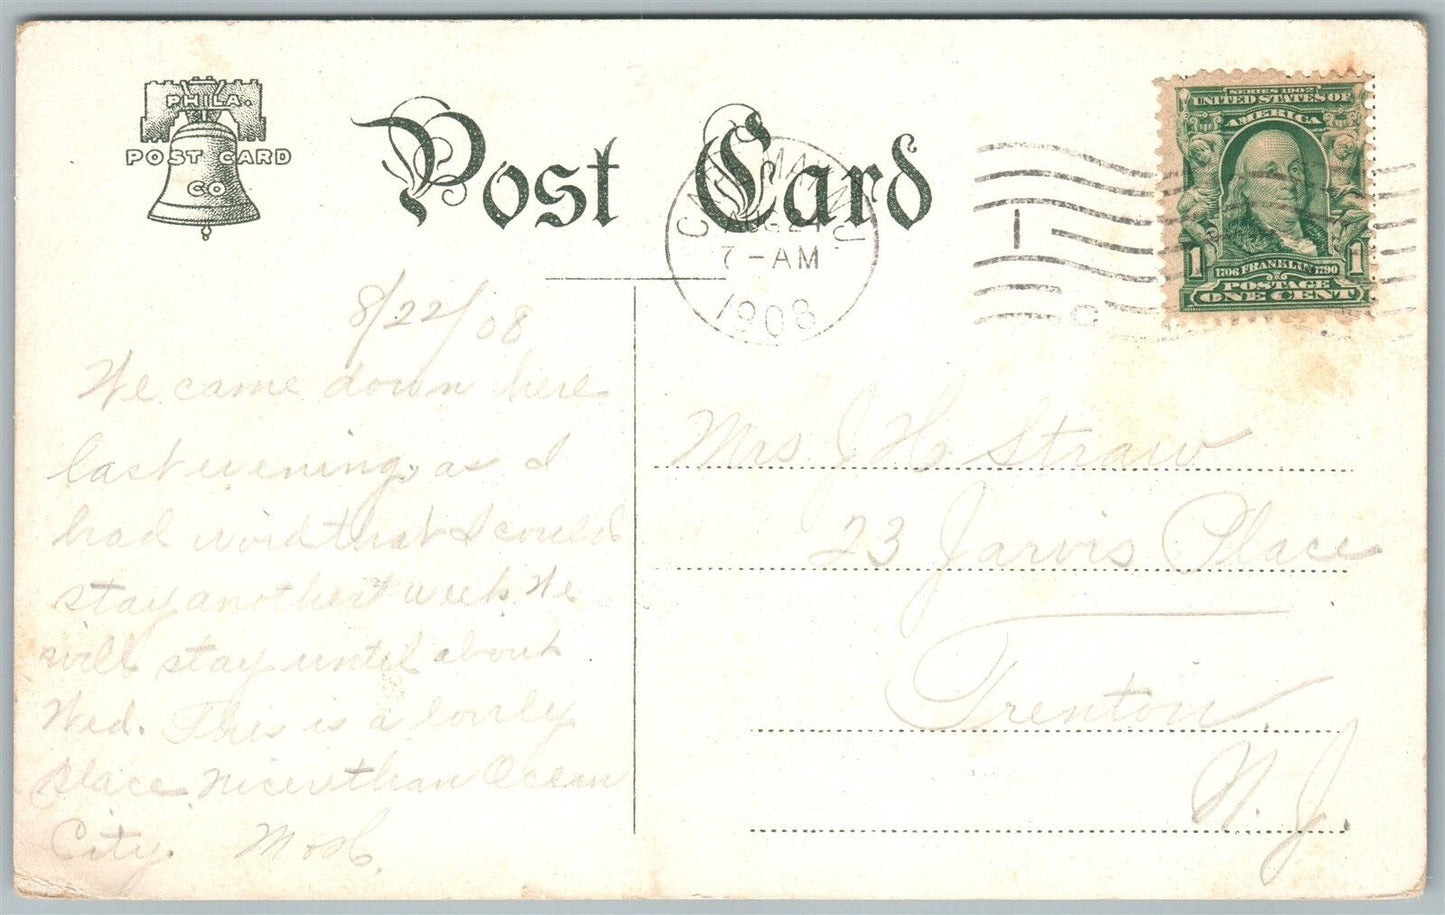 PHILA.
POST CARD
CO
Post Card
CAPE MAY, N.J.
AUG 24
7-AM
1908
1
SERIES 1902
UNITED STATES OF
AMERICA
1 1
1706 FRANKLIN 1790
POSTAGE
ONE CENT
8/22/08
We came down here
last evening, as I
had word that I could
stay another week. We
will stay until about
Wed. This is a lovely
place nicer than Ocean
City.
Mrs. J H Straw
23 Jarvis Place
Trenton
N. J.